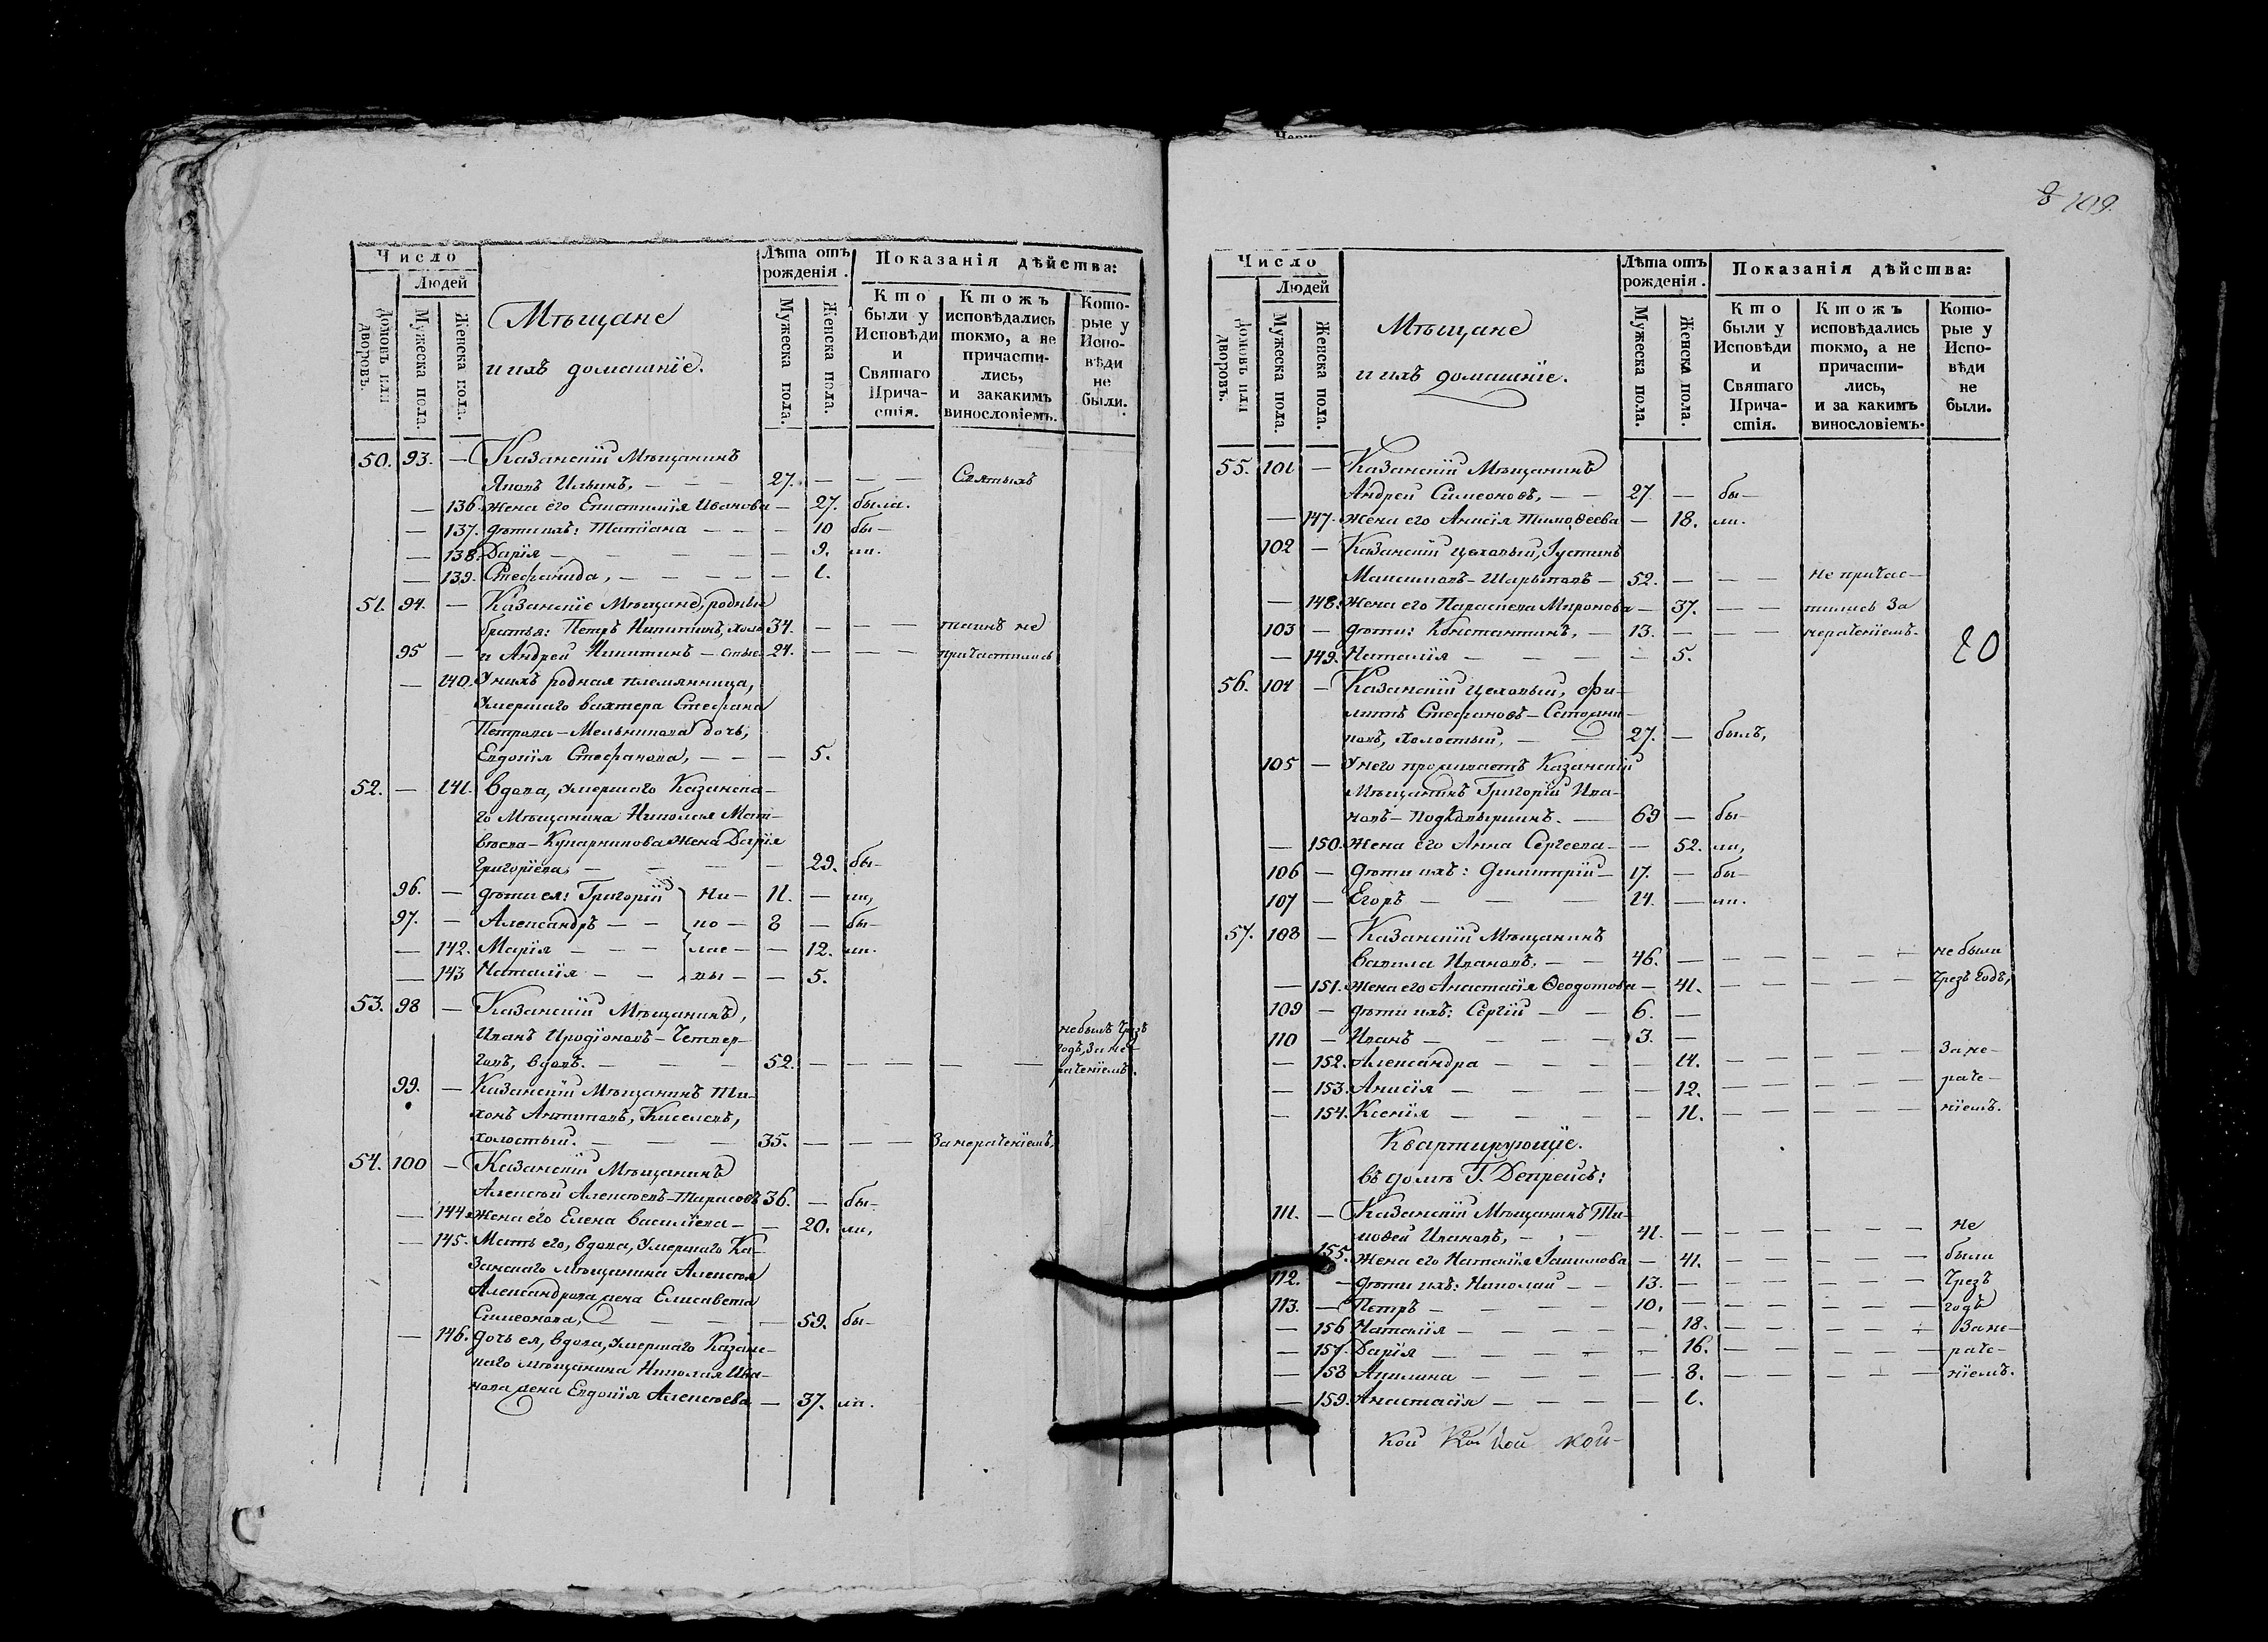 Число
Людей
Домовъ или дворовъ.
Мужеска пола.
Женска пола.
Мѣщане
и ихъ домашніе.
Лѣта отъ рожденія.
Мужеска пола.
Женска пола.
Показанія дѣйства:
Кто были у Исповѣди и Святаго Причастія.
Ктожъ исповѣдались токмо, а не причастились, и закакимъ винословіемъ.
Которые у Исповѣди не были.
50. 93. — Казанскій Мѣщанинъ
Иковъ Ильинъ, — — — 27. — — — Святыхъ
— 136. жена его Епистимія Иванова — 27. была.
— 137. дѣти ихъ: Татіана — — — 10 бы-
— 138. Дарія — — — — — 9. ли.
— 139. Стефанида, — — — — 1.
51. 94. — Казанскіе Мѣщане, родные
братья: Петръ Никитинъ, холо 34. — — — таинъ не
95 — и Андрей Никитинъ — стые. 24. — — — причастились
— 140. У нихъ родная племянница,
умершаго вахтера Стефана
Петрова — Мельникова дочь,
Евдокія Стефанова, — — — 5.
52. — 141. вдова, умершаго Казанска-
го Мѣщанина Николая Мат-
вѣева — Купарникова жена Дарія
Григоріева, — — — — 29. бы-
96. — дѣти ея: Григорій Ни- 11. — ли,
97. — Александръ — — ко- 8 — бы-
— 142. Марія — — — лае- — 12. ли.
— 143 Наталія — — вы — — 5.
53. 98 — Казанскій Мѣщанинъ,
Иванъ Иродіоновъ — Четвер-
говъ, вдовъ. — — — 52. — — — — — не былъ чрезъ годъ, за не-раченіемъ.
99. — Казанскій Мѣщанинъ Ти-
хонъ Антиповъ, Киселевъ,
холостый. — — — 35. — — — За нераченіемъ,
54. 100 — Казанскій Мѣщанинъ
Алексѣй Алексѣевъ — Тарасовъ 36. — бы-
— 144. жена его Елена Василіева — — 20. ли,
— 145. Мать его, вдова, умершаго Ка-
занскаго мѣщанина Алексѣя
Александрова жена Елисавета
Симеонова, — — — — 59. бы-
— 146. Дочь ея, вдова, умершаго Казанс-
каго мѣщанина Николая Ива-
нова жена Евдокія Алексѣева — 37. ли.
109.
Число
Людей
Домовъ или дворовъ.
Мужеска пола.
Женска пола.
Мѣщане
и ихъ домашніе.
Лѣта отъ рожденія.
Мужеска пола.
Женска пола.
Показанія дѣйства:
Кто были у Исповѣди и Святаго Причастія.
Ктожъ исповѣдались токмо, а не причастились, и за какимъ винословіемъ.
Которые у Исповѣди не были.
55. 101 — Казанскій Мѣщанинъ
Андрей Симеоновъ, — — 27. — бы-
— 147. жена его Анисія Тимоѳеева — 18. ли.
102 — Казанскій цеховый, Іустинъ
Максимовъ — Шарыповъ — 52. — — — не причас-
— 148. жена его Параскева Миронова — 37. — — тились За
103 — дѣти: Константинъ, — 13. — — — нераченіемъ.
— 149. Наталія — — — — 5.
20
56. 104 — Казанскій цеховый, Фи-
липпъ Стефановъ —
новъ, холостый, — — 27. — былъ,
105 — У него проживаетъ Казанскій
Мѣщанинъ Григорій Ива-
новъ — — 69 — бы-
— 150. жена его Анна Сергеева — — 52. ли,
106 — дѣти ихъ: Димитрій — 17. — бы-
107 — Егоръ — — — 14. — ли.
57. 108 — Казанскій Мѣщанинъ
Вавила Ивановъ, — — 46. — — — — — не были
— 151. жена его Анастасія Ѳеодотова — 41. — — — — — чрезъ годъ,
109 — дѣти ихъ: Сергій — — 6. —
110 — Иванъ — — — — 3. —
— 152. Александра — — — — 14. — — — — — За не-
— 153. Анисія — — — — — 12. — — — — — раче-
— 154. Ксенія — — — — — 11. — — — — — ніемъ.
Квартирующіе.
въ домѣ Г. Депрейсъ:
111. — Казанскій Мѣщанинъ Ти-
моѳей Ивановъ, — — 41. — — — — — не
155. жена его Наталія Іакимова — 41. — — — — — были
112. — дѣти ихъ: Николай — — 13. — — — — — чрезъ
113. — Петръ — — — — 10. — — — — — годъ
— 156 Наталія — — — — — 18. — — — — — За не-
— 157. Дарія — — — — — 16. — — — — — раче-
— 158 Акилина — — — — 8. — — — — — ніемъ.
— 159. Анастасія — — — — 1.
кой кой кой кой-